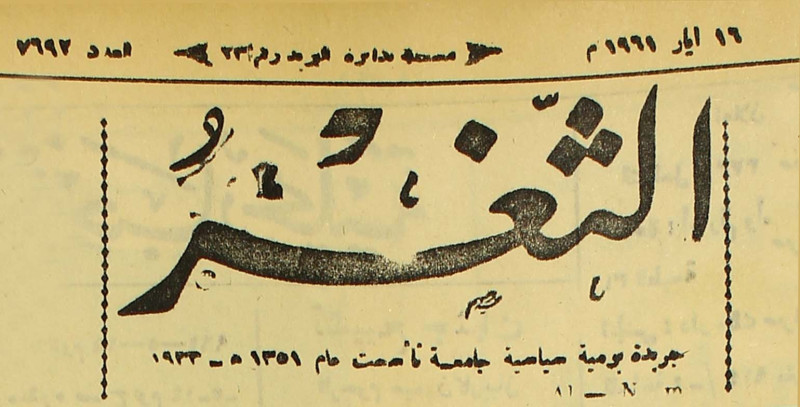 ١٦ ايار ١٩٦١ م مسجلة بدائرة البريد رقم ٢٣ العدد ٧٦٩٢
الثَّغْرُ
جريدة يومية سياسية جامعة تأسست عام ١٣٥١ ه ـ ١٩٣٣